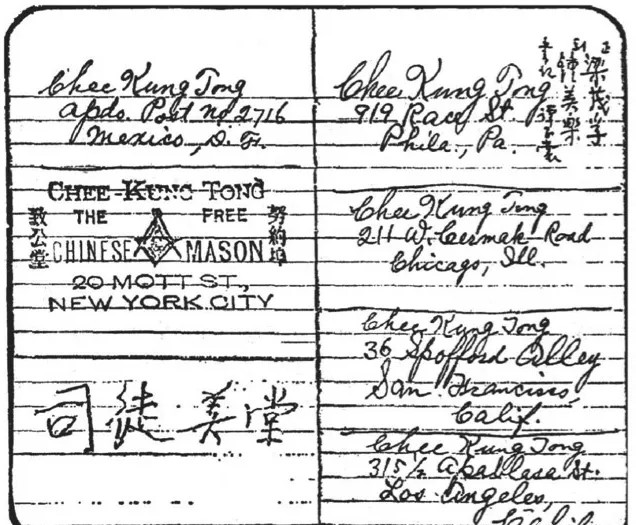 Chee Kung Tong
apdo. Post no 2716
Mexico, D. F.
CHEE-KUNG TONG
THE FREE
CHINESE MASON
20 MOTT ST.,
NEW YORK CITY
致公堂
努約埠
司徒美堂
Chee Kung Tong
919 Race St.
Phila., Pa.
Chee Kung Tong
211 W. Cermak Road
Chicago, Ill.
Chee Kung Tong
36 Spofford Alley
San Francisco,
Calif.
Chee Kung Tong
315½ Apablasa St.
Los Angeles,